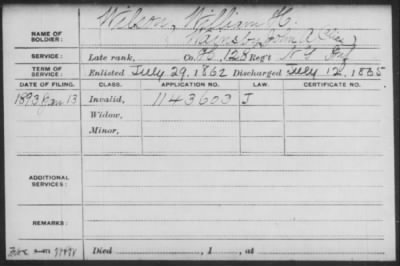 NAME OF SOLDIER: Wilson, William H.
John A (Alias)
SERVICE: Late rank, Co. G, 128 Reg't N.Y. Inf
TERM OF SERVICE: Enlisted July 29, 1862 Discharged July 12, 1865
DATE OF FILING. CLASS. APPLICATION NO. LAW. CERTIFICATE NO.
1893 Jan 13 Invalid, 1143603 J
Widow,
Minor,
ADDITIONAL SERVICES:
REMARKS:
Died , 1 , at